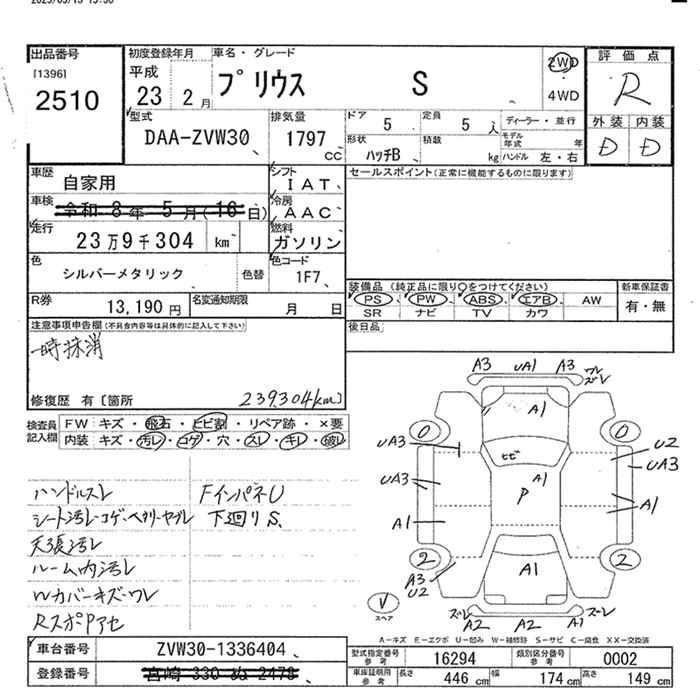 出品番号
[1396]
2510
初度登録年月
平成
23 2月
車名・グレード
プリウス S
2WD
4WD
評価点
R
外装 内装
D D
型式
DAA-ZVW30
排気量
1797
CC
ドア
5
定員
5人
形状
ハッチB
積載
kg
ディーラー・並行
モデル年式 年
ハンドル 左・右
車歴
自家用
シフト
IAT
車検
令和 8年 5月(16日)
冷房
AAC
走行
23万9千304 km
燃料
ガソリン
色
シルバーメタリック
色替
色コード
1F7
R券
13,190円
名変通知期限
月 日
セールスポイント(正常に機能するものに限ります)
装備品(純正品に限り○をつけてください)
PS PW ABS エアB AW
SR ナビ TV カワ
新車保証書
有・無
後日品
注意事項申告欄(不具合内容等は具体的に記入して下さい)
一時抹消
修復歴 有〔箇所
239,304km〕
検査員記入欄
FW キズ・飛石・ヒビ割・リペア跡・×要
内装 キズ・汚レ・コゲ・穴・スレ・キレ・破レ
ハンドルスレ
シート汚レ・コゲ・ヘタリ・ヤブレ
天張汚レ
ルーム内汚レ
Wカバーキズ・ワレ
RスポPアセ
FインパネU
下廻りS
A3 UA1 A3 ワレ
ズレ
A1
0 0
UA3
ヒビ
U2
UA3
UA3
A1
P
A1
A1
2 2
A3
U2
A1
V
スペア
ズレ A2 A2 A1 ズレ
A-キズ E-エクボ U-凹み W-補修跡 S-サビ C-腐食 XX-交換済
車台番号
ZVW30-1336404
登録番号
宮崎 330 ぬ 2478
型式指定番号
参考
16294
類別区分番号
参考
0002
車庫証明用
参考
長さ 446cm
幅 174cm
高さ 149cm